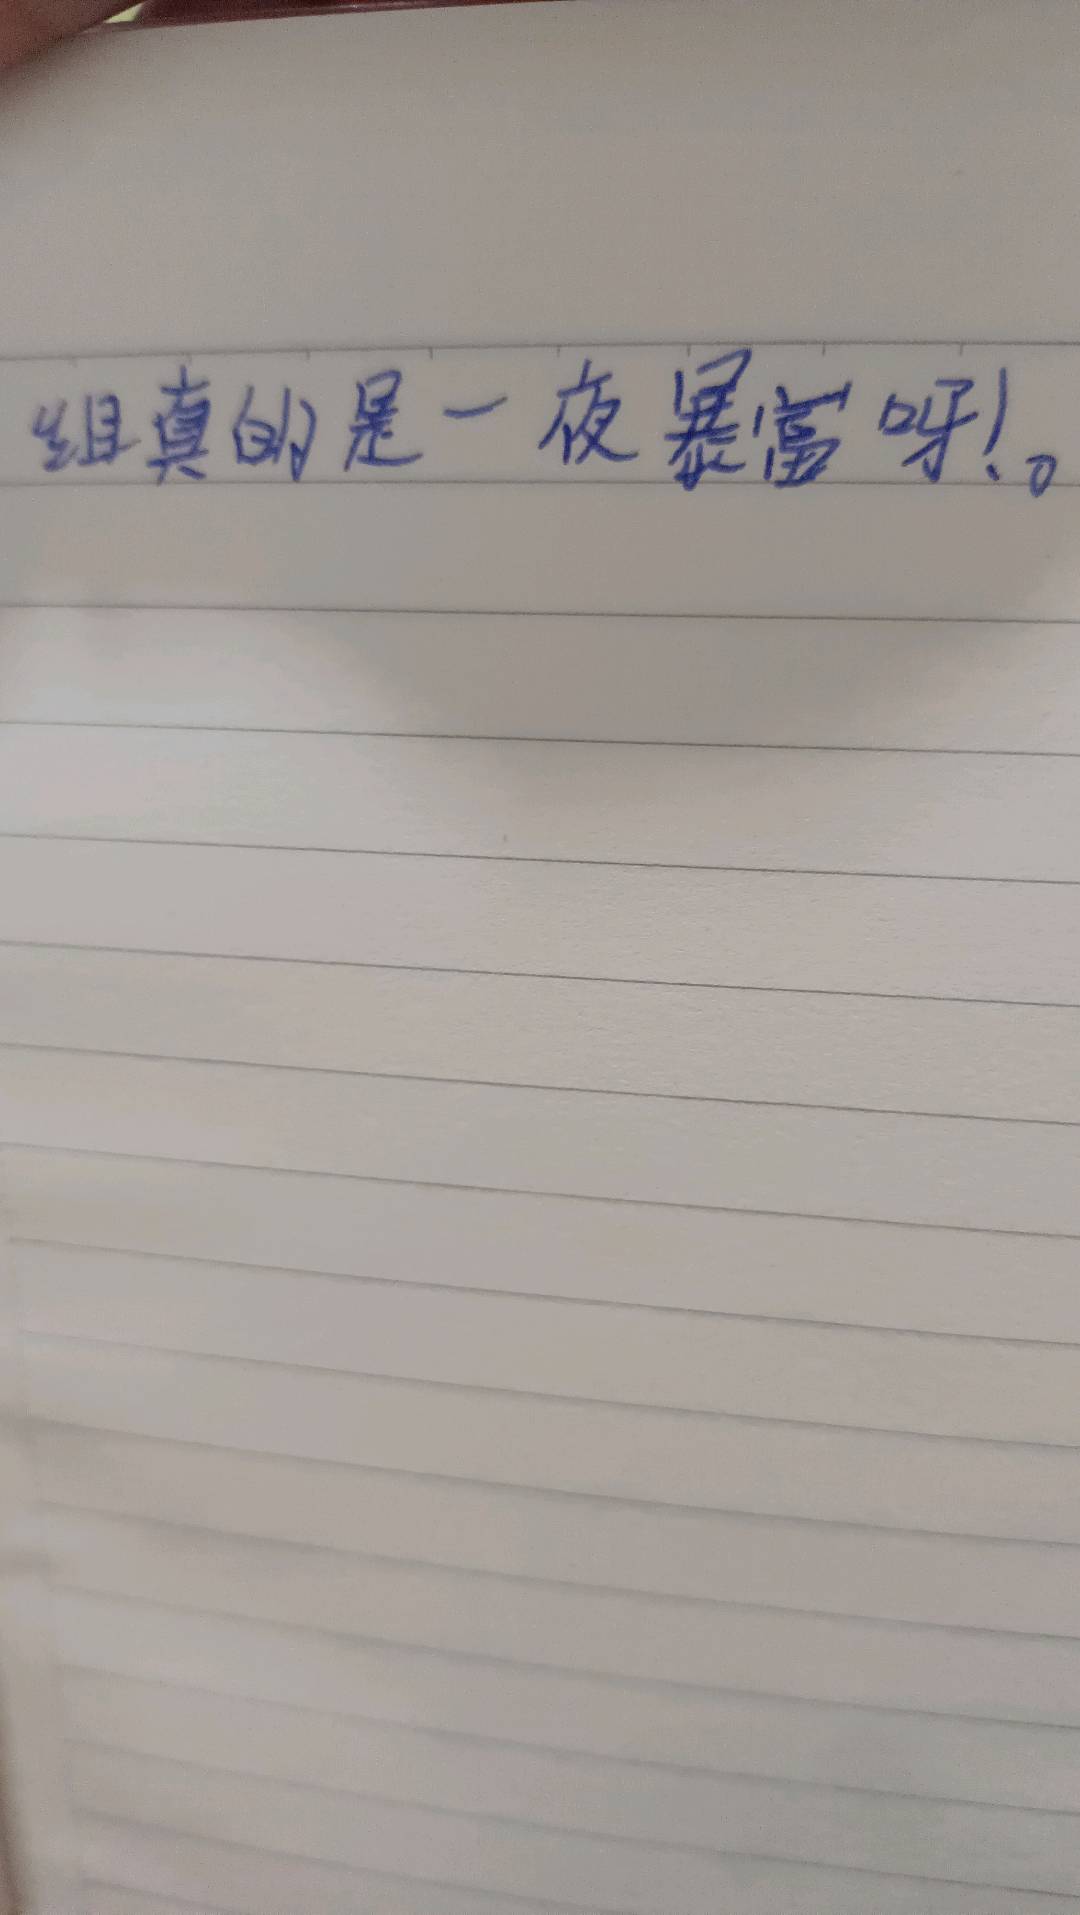 组真的是一夜暴富呀!。